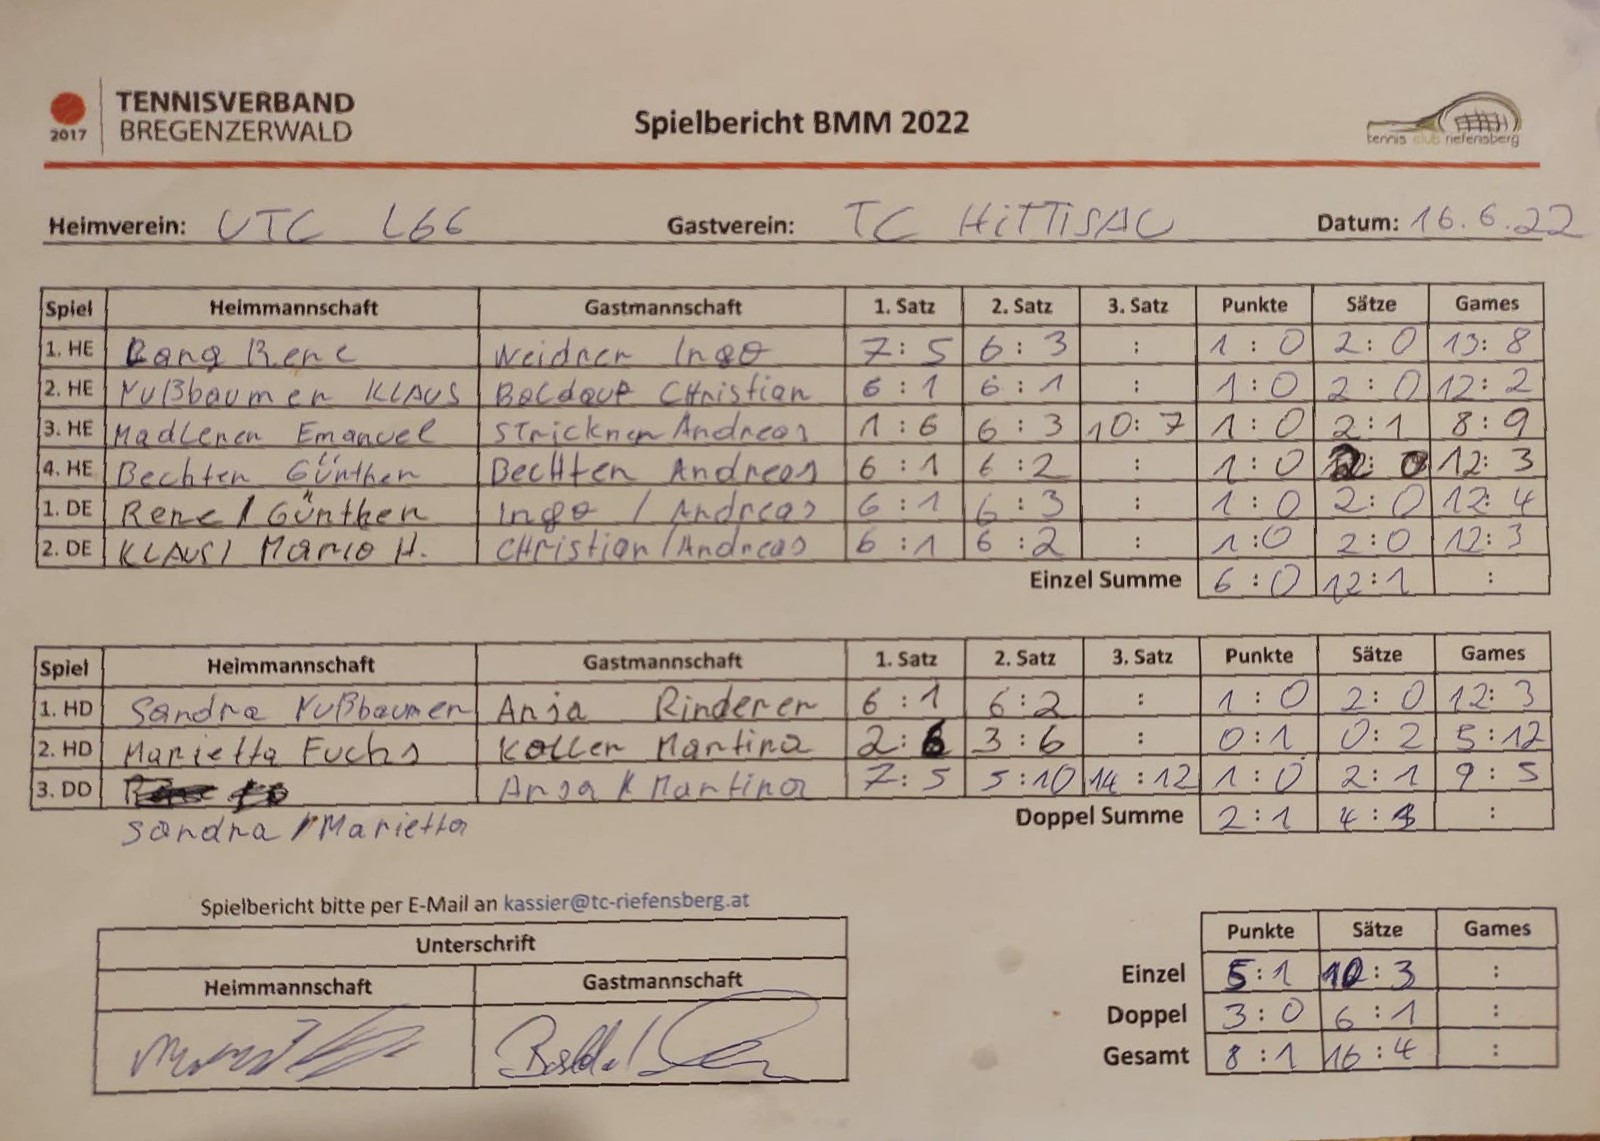 TENNISVERBAND
BREGENZERWALD
2017
Spielbericht BMM 2022
tennis club riefensberg
Heimverein: UTC L66 Gastverein: TC HiTTiSAU Datum: 16.6.22
Spiel Heimmannschaft Gastmannschaft 1. Satz 2. Satz 3. Satz Punkte Sätze Games
1. HE Bang Rene Weidner Ingo 7:5 6:3 : 1:0 2:0 13:8
2. HE Nußbaumer KLAUS Baldauf CHristian 6:1 6:1 : 1:0 2:0 12:2
3. HE Madlener Emanuel Strickner Andreas 1:6 6:3 10:7 1:0 2:1 8:9
4. HE Bechter Günther BecHter Andreas 6:1 6:2 : 1:0 2:0 12:3
1. DE Rene / Günther Ingo / Andreas 6:1 6:3 : 1:0 2:0 12:4
2. DE KLAUS / Mario H. CHristian / Andreas 6:1 6:2 : 1:0 2:0 12:3
Einzel Summe 6:0 12:1 :
Spiel Heimmannschaft Gastmannschaft 1. Satz 2. Satz 3. Satz Punkte Sätze Games
1. HD Sandra Nußbaumer Anja Rinderer 6:1 6:2 : 1:0 2:0 12:3
2. HD Marietta Fuchs Koller Martina 2:6 3:6 : 0:1 0:2 5:12
3. DD Anja Martina 7:5 5:10 14:12 1:0 2:1 9:5
Sandra / Marietta Doppel Summe 2:1 4:3 :
Spielbericht bitte per E-Mail an kassier@tc-riefensberg.at
Unterschrift
Heimmannschaft Gastmannschaft
Punkte Sätze Games
Einzel 5:1 10:3 :
Doppel 3:0 6:1 :
Gesamt 8:1 16:4 :